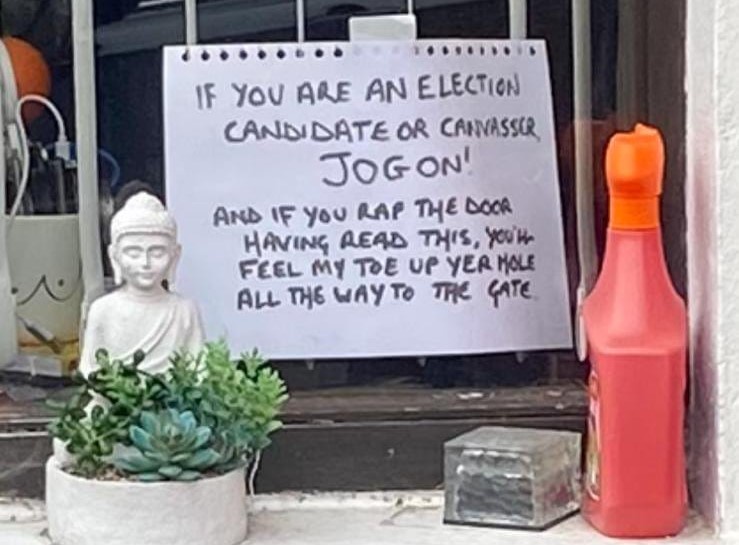 IF YOU ARE AN ELECTION
CANDIDATE OR CANVASSER,
JOG ON!
AND IF YOU RAP THE DOOR
HAVING READ THIS, YOU'LL
FEEL MY TOE UP YER HOLE
ALL THE WAY TO THE GATE.